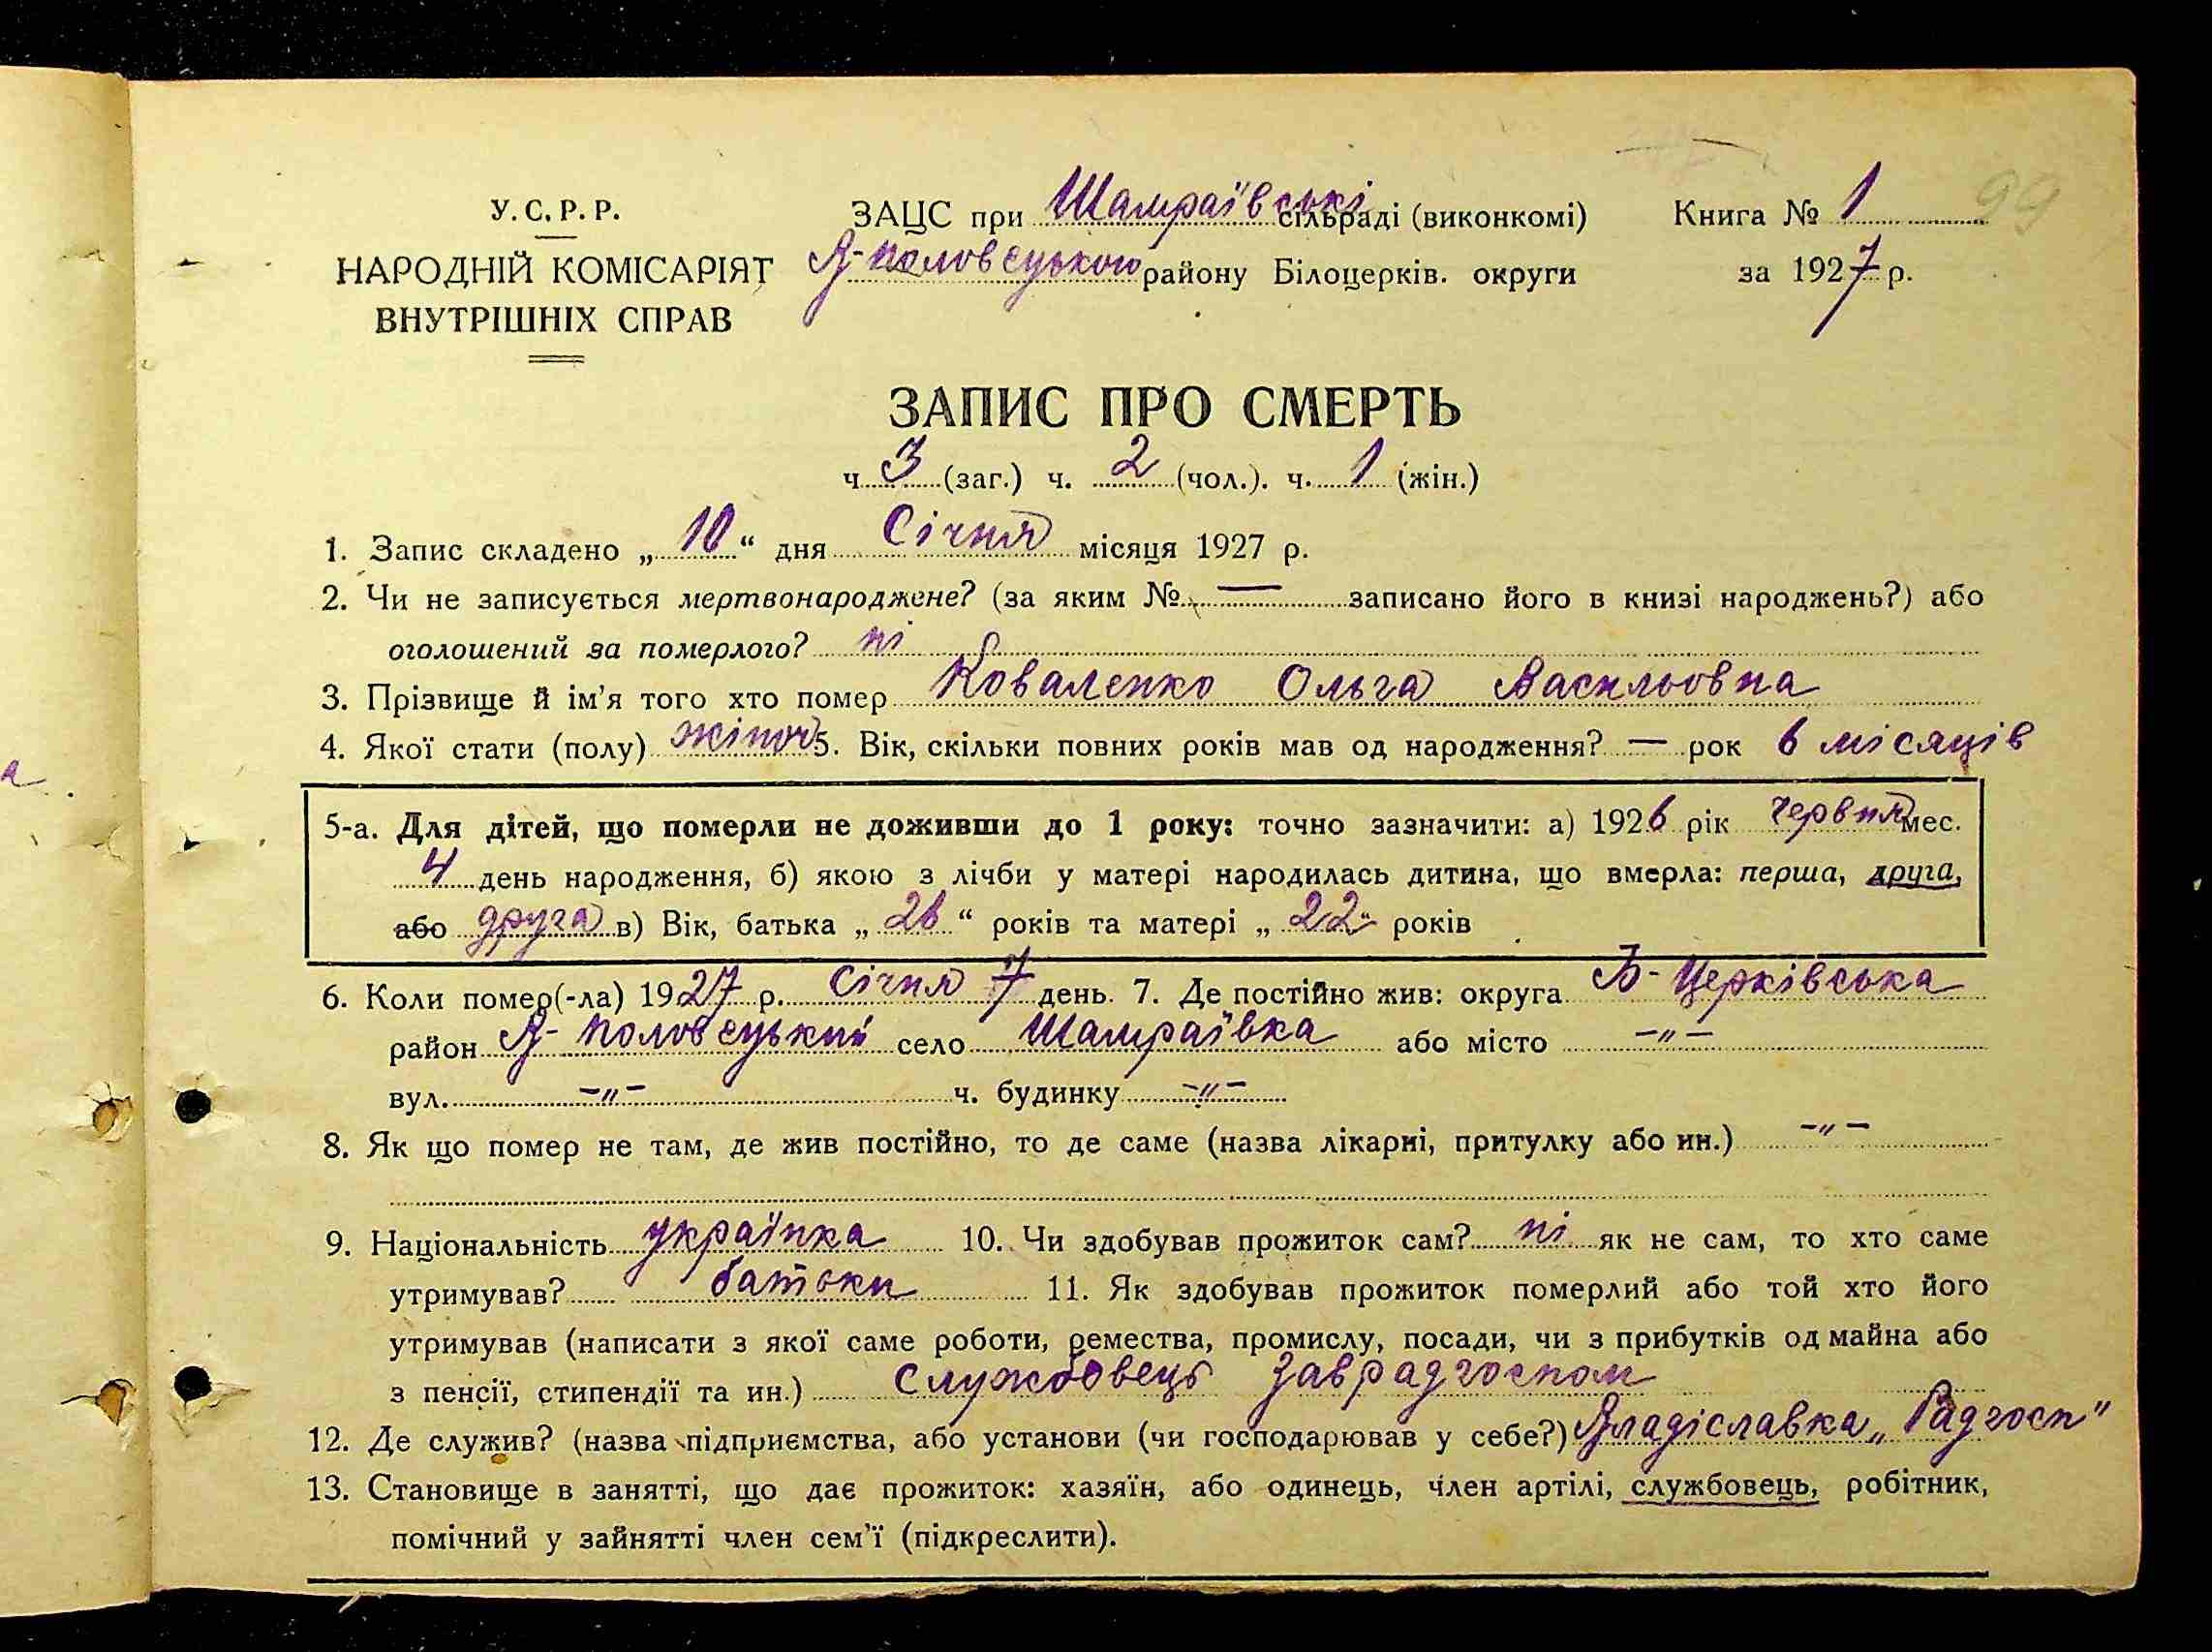 У.С.Р.Р.
НАРОДНІЙ КОМІСАРІЯТ
ВНУТРІШНІХ СПРАВ
ЗАЦС при Шамраївській сільраді (виконкомі)
Я-Половецького району Білоцерків. округи
Книга № 1
99
за 1927 р.
ЗАПИС ПРО СМЕРТЬ
ч 3 (заг.) ч. 2 (чол.). ч. 1 (жін.)
1. Запис складено „ 10 “ дня Січня місяця 1927 р.
2. Чи не записується мертвонароджене? (за яким № — записано його в книзі народжень?) або
оголошений за померлого? ні
3. Прізвище й ім'я того хто помер Коваленко Ольга Васильовна
4. Якої стати (полу) жіноч 5. Вік, скільки повних років мав од народження? — рок 6 місяців
5-а. Для дітей, що померли не доживши до 1 року: точно зазначити: а) 1926 рік червня мес.
4 день народження, б) якою з лічби у матері народилась дитина, що вмерла: перша, друга,
або друга в) Вік, батька „ 26 “ років та матері „ 22 “ років
6. Коли помер(-ла) 1927 р. Січня 7 день. 7. Де постійно жив: округа Б-Церківська
район Я-Половецький село Шамраївка або місто -„-
вул. -„- ч. будинку -„-
8. Як що помер не там, де жив постійно, то де саме (назва лікарні, притулку або ин.) -„-
9. Національність українка 10. Чи здобував прожиток сам? ні як не сам, то хто саме
утримував? батьки 11. Як здобував прожиток померлий або той хто його
утримував (написати з якої саме роботи, ремества, промислу, посади, чи з прибутків од майна або
з пенсії, стипендії та ин.) Службовець Заврадгоспом
12. Де служив? (назва підприємства, або установи (чи господарював у себе?) Владіславка „Радгосп”
13. Становище в занятті, що дає прожиток: хазяїн, або одинець, член артілі, службовець, робітник,
помічний у зайнятті член сем'ї (підкреслити).